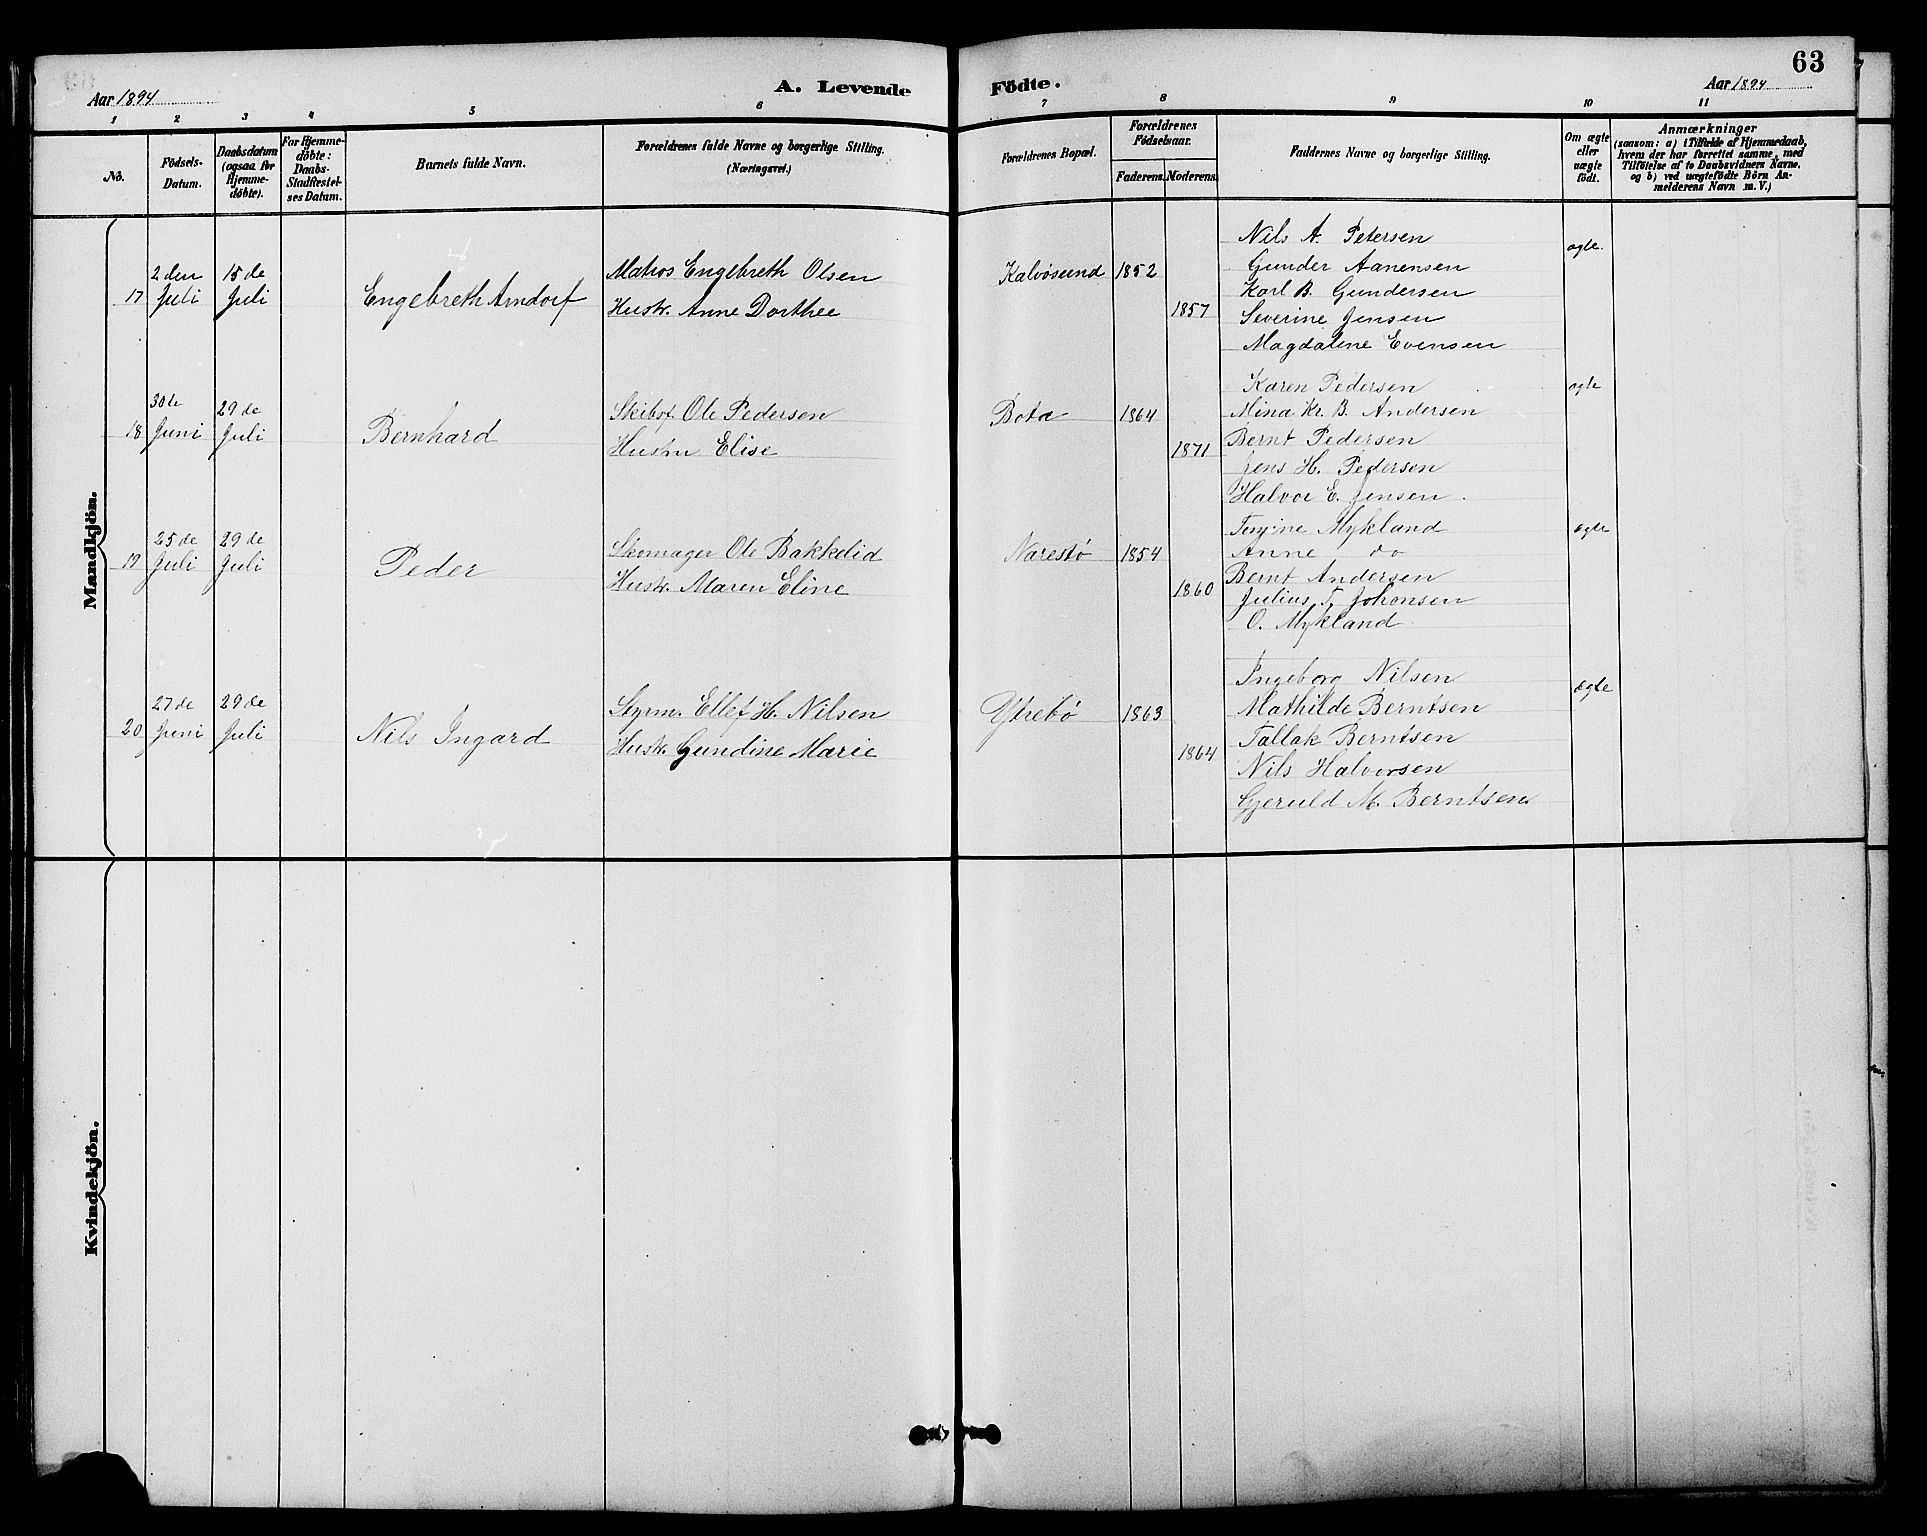 63
Aar 1894
A. Levende Födte.
Aar 1894
1 2 3 4 5 6 7 8 9 10 11
No.
Födsels-
Datum.
Daabsdatum
(ogsaa for
Hjemme-
döbte).
For Hjemme-
döbte:
Daabs-
Stadfæstel-
ses Datum.
Barnets fulde Navn.
Forældrenes fulde Navne og borgerlige Stilling.
(Næringsvei.)
Forældrenes Bopæl.
Forældrenes
Födselsaar.
Faderens. Moderens.
Faddernes Navne og borgerlige Stilling.
Om ægte
eller
uægte
födt.
Anmærkninger
(saasom: a) i Tilfælde af Hjemmedaab,
hvem der har forrettet samme, med
Tilföielse af to Daabsvidners Navne.
og b) ved uægtefödte Börn An-
melderens Navn m. V.)
Mandkjön.
17
2 den
Juli
15 de
Juli
Engebreth Arndorf
Matros Engebreth Olsen
Hustr. Anne Dorthee
Kalvøsund
1852
1857
Nils A. Petersen
Gunder Aanensen
Karl B. Gundersen
Severine Jensen
Magdalene Evensen
ægte.
18
30te
Juni
29 de
Juli
Bernhard
Skibsf. Ole Pedersen
Hustru Elise
Bota
1864
1871
Karen Pedersen
Mina Kr. B. Andersen
Bernt Pedersen
Jens H. Pedersen
Halvor E. Jensen.
ægte
19
25 de
Juli
29 de
Juli
Peder
Skomager Ole Bakkelid
Hustr. Maren Eline
Narestø
1854
1860
Terjine Mykland
Anne do
Bernt Andersen
Julius T. Johonsen
O. Mykland
ægte
20
27 de
Juni
29 de
Juli
Nils Ingard
Styrm. Ellef H. Nilsen
Hustr. Gundine Marie
Ytrebø
1863
1864
Ingeborg Nilsen
Mathilde Berntsen
Tallak Berntsen
Nils Halvorsen
Gjeruld M. Berntsen
ægte
Kvindekjön.